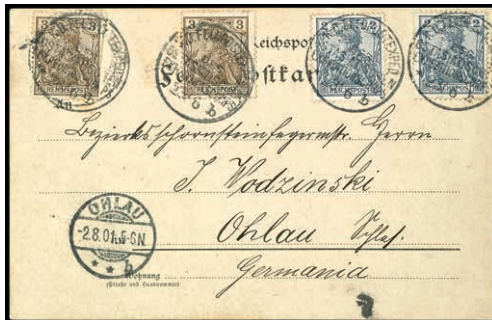 3 3 2 2
REICHSPOST REICHSPOST REICHSPOST REICHSPOST
Reichspost
An
Bezirksschornsteinfegermstr. Herrn
J. Wodzinski
OHLAU
-2.8.01.5-6N.
* * b
Ohlau Schles.
Germania
Wohnung
(Straße und Hausnummer)